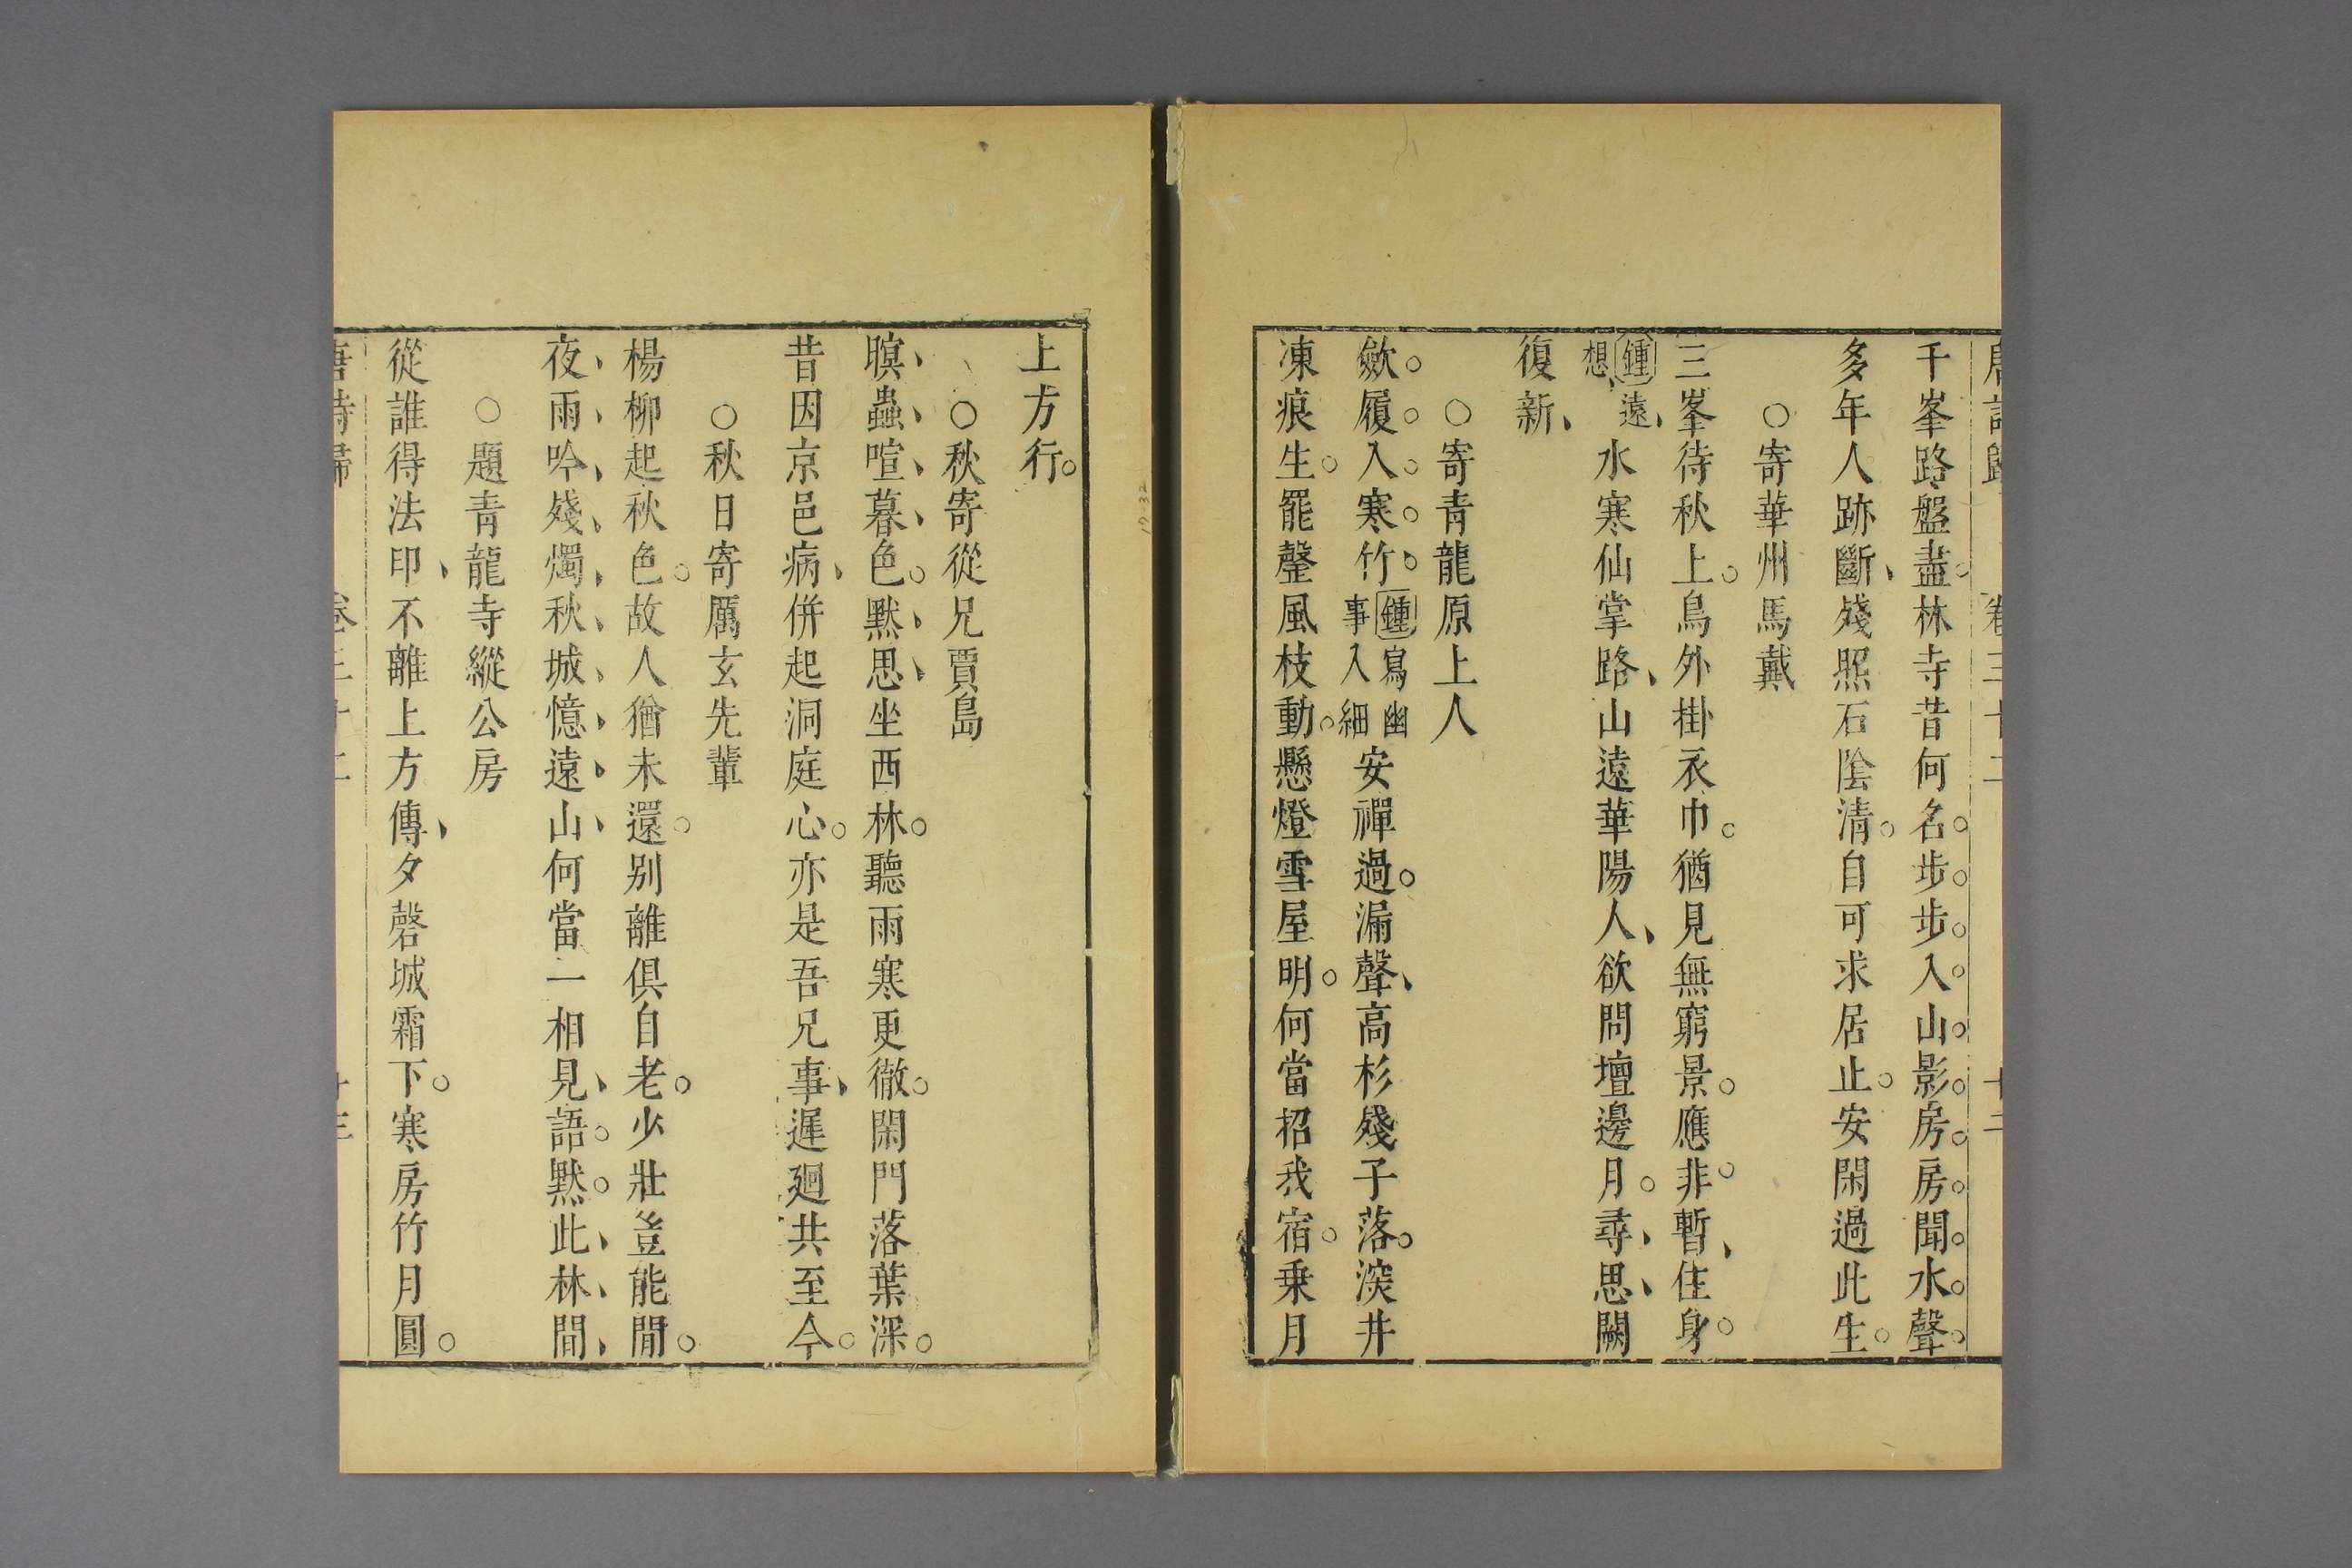 唐詩歸 卷三十二 十二
千峯路盤盡林寺昔何名步步入山影房房聞水聲
多年人跡斷殘照石陰清自可求居止安閑過此生
○寄華州馬戴
三峯待秋上鳥外掛衣巾猶見無窮景應非暫住身
鍾遠想水寒仙掌路山遠華陽人欲問壇邊月尋思闕
復新
○寄青龍原上人
斂履入寒竹鍾寫幽事入細安禪過漏聲高杉殘子落深井
凍痕生罷磬風枝動懸燈雪屋明何當招我宿乗月
上方行
○秋寄從兄賈島
暝蟲喧暮色默思坐西林聽雨寒更徹開門落葉深
昔因京邑病併起洞庭心亦是吾兄事遲廻共至今
○秋日寄厲玄先輩
楊柳起秋色故人猶未還别離俱自老少壯豈能閒
夜雨吟殘燭秋城憶遠山何當一相見語默此林間
○題青龍寺縱公房
從誰得法印不離上方傳夕磬城霜下寒房竹月圓
唐詩歸 卷三十二 十三